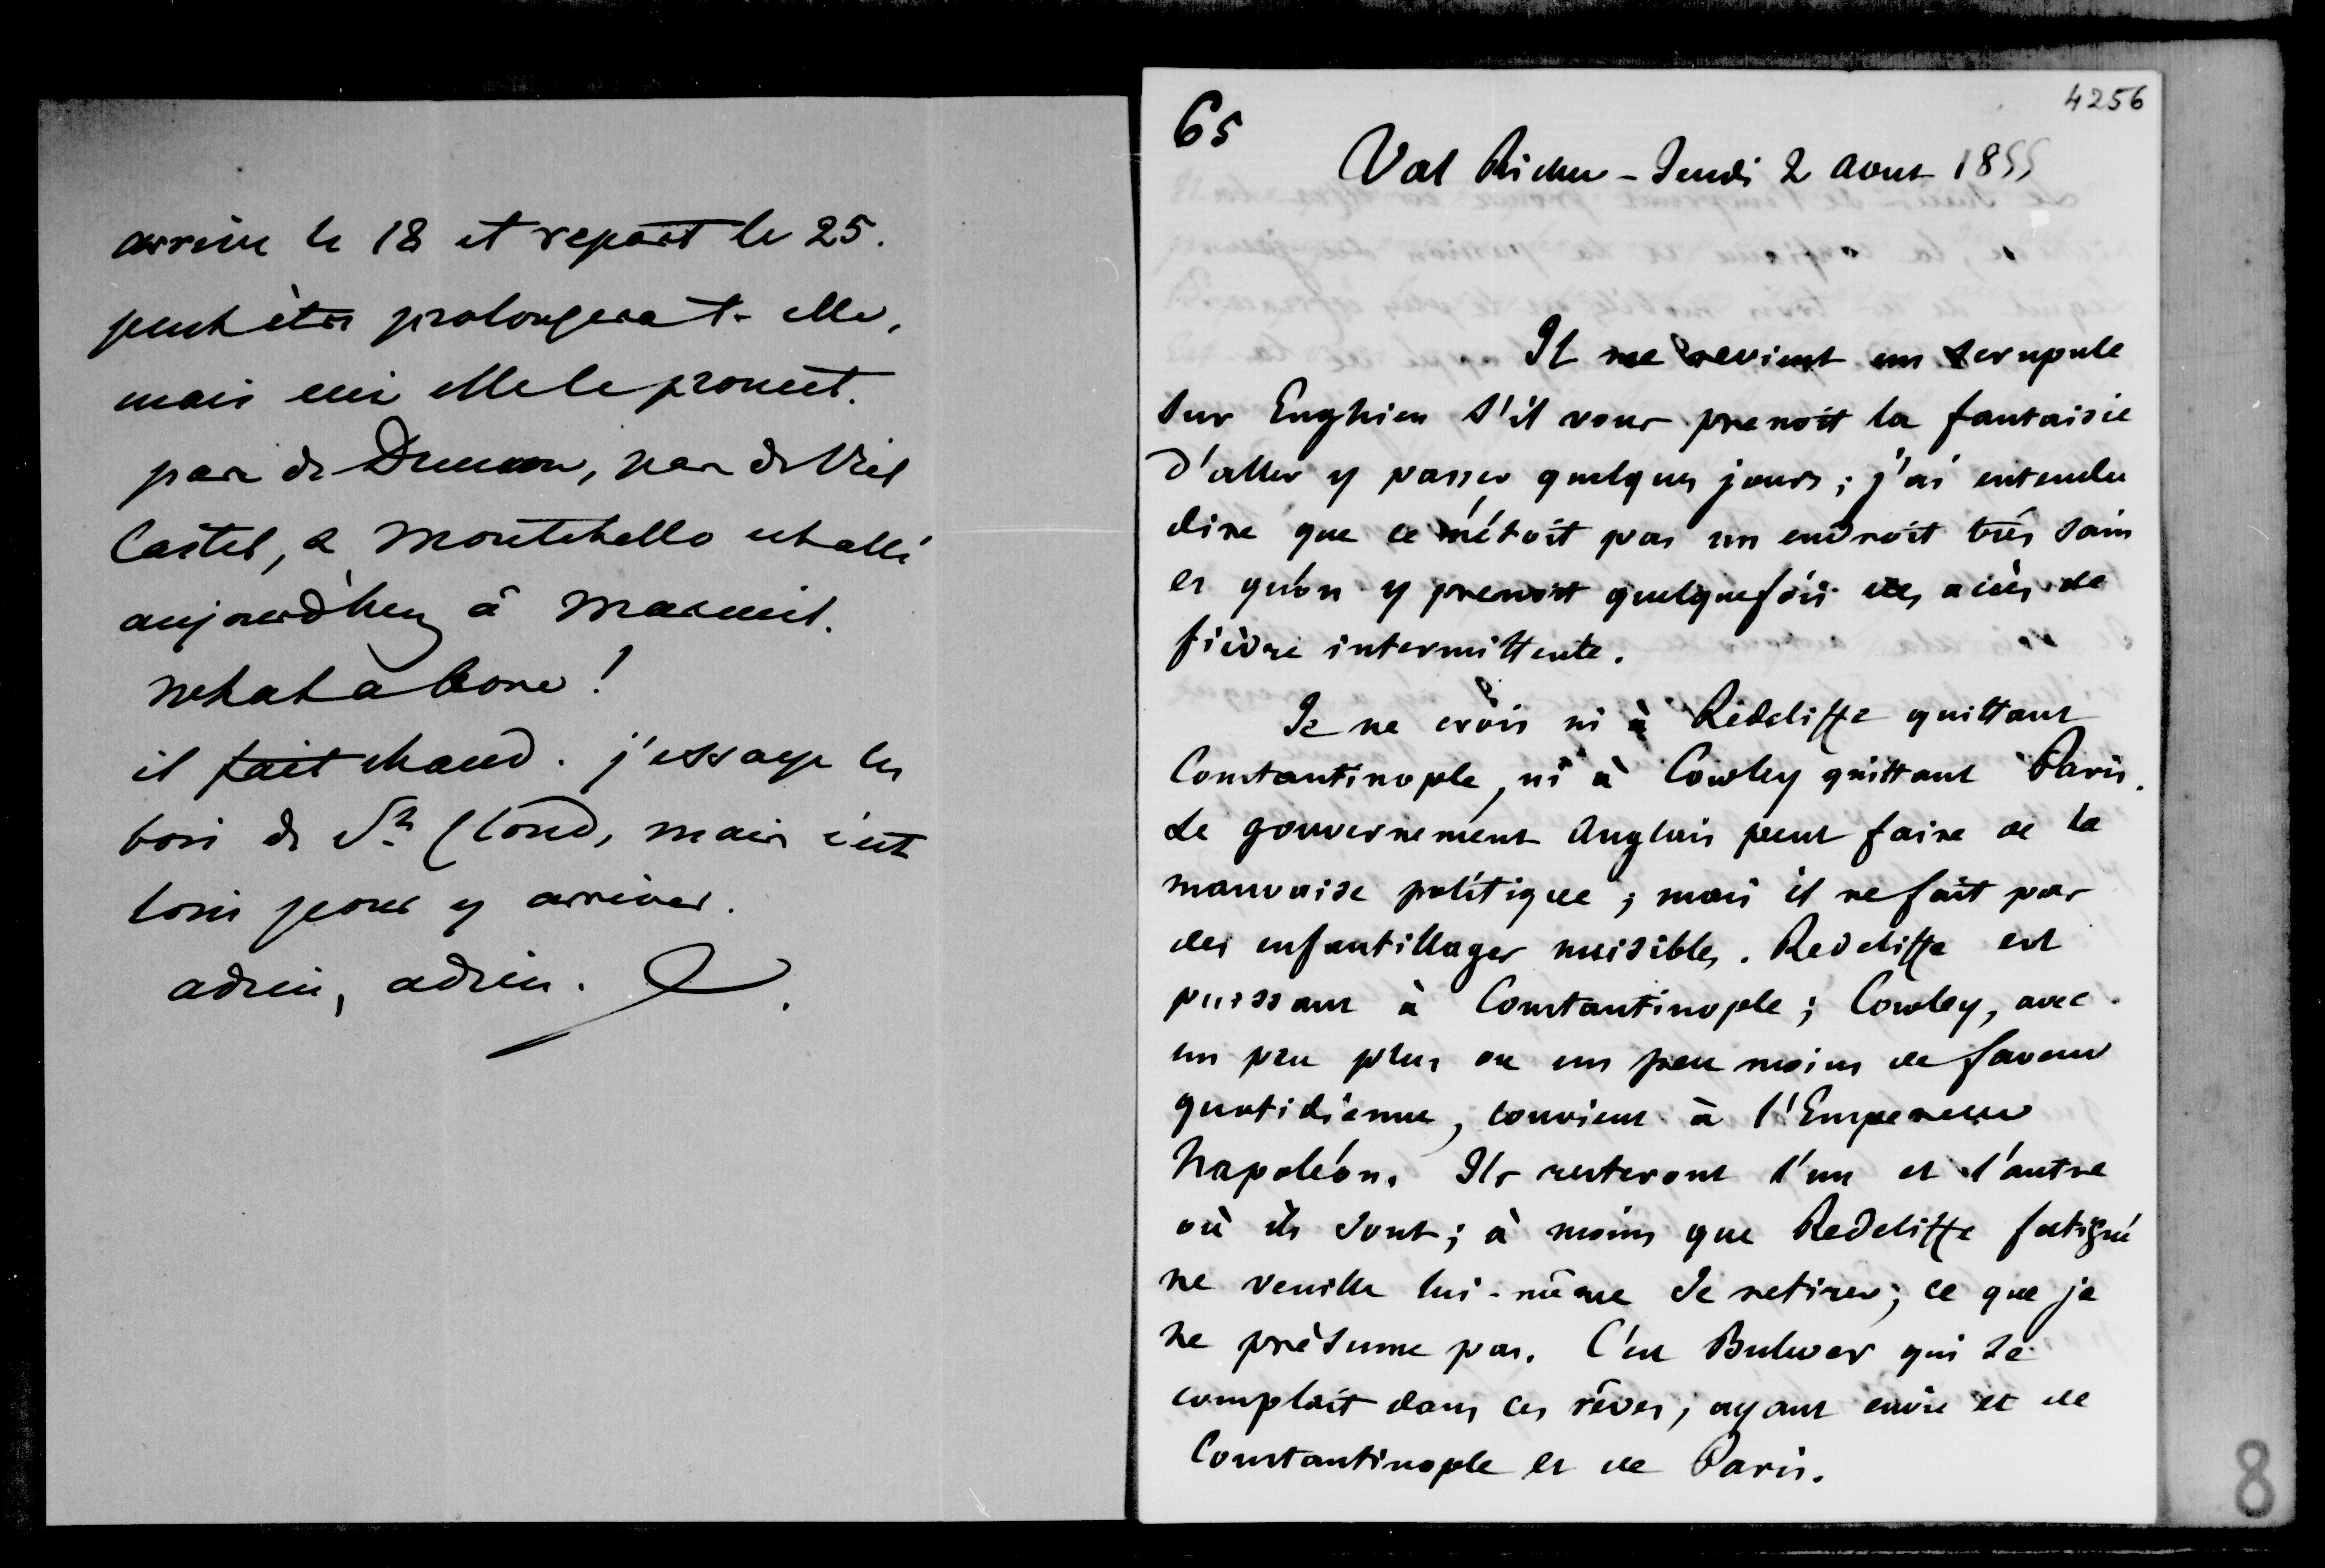 arrive le 18 et repart le 25.
peut être prolongera t-elle,
mais ici elle le promet.
pas de Dumon, pas de Viel
Castel, & Montebello est allé
aujourd'huy à Mareuil.
what a bore !
il fait chaud. j'essaye les
bois de St Cloud, mais c'est
loin pour y arriver.
adieu, adieu.
65
4256
Val Richer - Jeudi 2 aout 1855
Il me revient un scrupule
sur Enghien s'il vous prenoit la fantaisie
d'aller y passer quelques jours ; j'ai entendu
dire que ce n'étoit pas un endroit très sain
et qu'on y prenoit quelquefois des accès de
fièvre intermittente.
Je ne crois ni à Redcliffe quittant
Constantinople, ni à Cowley quittant Paris.
Le gouvernement Anglais peut faire de la
mauvaise politique ; mais il ne fait pas
des enfantillages nuisibles. Redcliffe est
puissant à Constantinople ; Cowley, avec
un peu plus ou un peu moins de faveur
quotidienne, convient à l'Empereur
Napoléon. Ils resteront l'un et l'autre
où ils sont ; à moins que Redcliffe fatigué
ne veuille lui-même se retirer ; ce que je
ne présume pas. C'est Bulwer qui se
complait dans ces rêves ; ayant envie et de
Constantinople et de Paris.
8